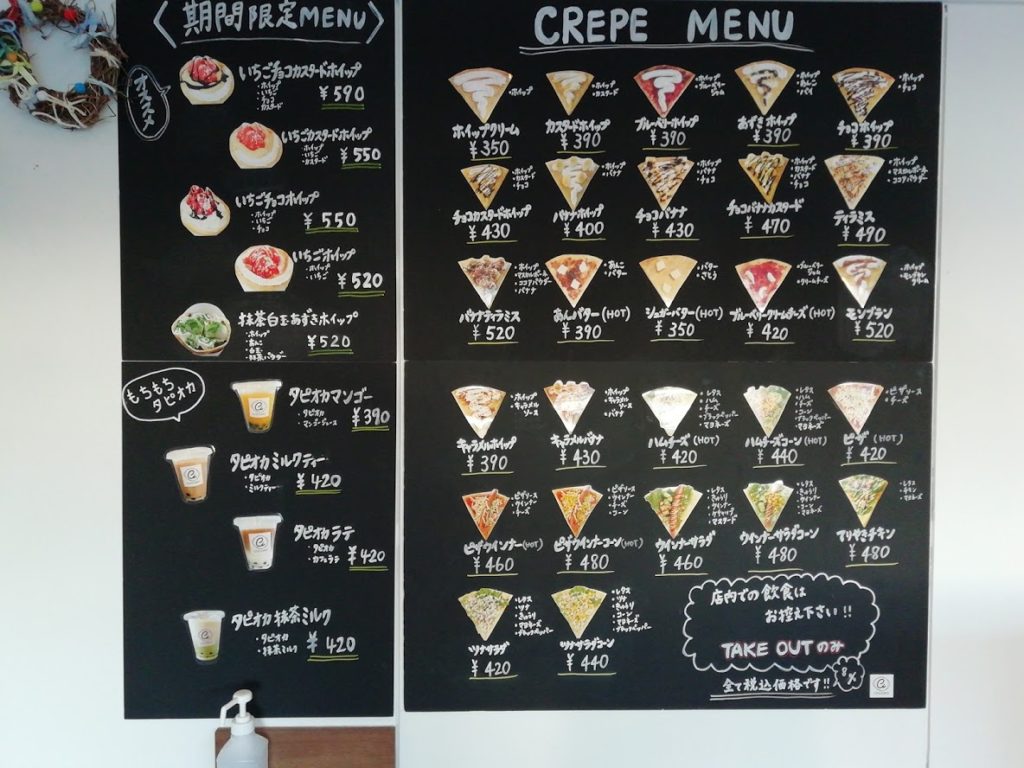 期間限定MENU
オススメ
いちごチョコカスタードホイップ
・ホイップ
・いちご
・チョコ
・カスタード
¥590
いちごカスタードホイップ
・ホイップ
・いちご
・カスタード
¥550
いちごチョコホイップ
・ホイップ
・いちご
・チョコ
¥550
いちごホイップ
・ホイップ
・いちご
¥520
抹茶白玉あずきホイップ
・ホイップ
・あんこ
・白玉
・抹茶パウダー
¥520
もちもち
タピオカ
タピオカマンゴー
・タピオカ
・マンゴージュース
¥390
タピオカミルクティー
・タピオカ
・ミルクティー
¥420
タピオカラテ
・タピオカ
・カフェラテ
¥420
タピオカ抹茶ミルク
・タピオカ
・抹茶ミルク
¥420
CREPE MENU
・ホイップ
ホイップクリーム
¥350
・ホイップ
・カスタード
カスタードホイップ
¥390
・ホイップ
・ブルーベリー
ジャム
ブルーベリーホイップ
¥390
・ホイップ
・あんこ
・パイ
あずきホイップ
¥390
・ホイップ
・チョコ
チョコホイップ
¥390
・ホイップ
・カスタード
・チョコ
チョコカスタードホイップ
¥430
・ホイップ
・バナナ
バナナホイップ
¥400
・ホイップ
・バナナ
・チョコ
チョコバナナ
¥430
・ホイップ
・カスタード
・バナナ
・チョコ
チョコバナナカスタード
¥470
・ホイップ
・マスカルポーネ
・ココアパウダー
ティラミス
¥490
・ホイップ
・マスカルポーネ
・ココアパウダー
・バナナ
バナナティラミス
¥520
・あんこ
・バター
あんバター(HOT)
¥390
・バター
・さとう
シュガーバター(HOT)
¥350
・ブルーベリー
ジャム
・クリームチーズ
ブルーベリークリームチーズ(HOT)
¥420
・ホイップ
・モンブラン
クリーム
モンブラン
¥520
・ホイップ
・キャラメル
ソース
キャラメルホイップ
¥390
・ホイップ
・キャラメル
ソース
・バナナ
キャラメルバナナ
¥430
・レタス
・ハム
・チーズ
・ブラックペッパー
・マヨネーズ
ハムチーズ(HOT)
¥420
・レタス
・ハム
・チーズ
・コーン
・ブラックペッパー
・マヨネーズ
ハムチーズコーン(HOT)
¥440
・ピザソース
・チーズ
ピザ(HOT)
¥420
・ピザソース
・ウインナー
・チーズ
ピザウインナー(HOT)
¥460
・ピザソース
・ウインナー
・チーズ
・コーン
ピザウインナーコーン(HOT)
¥480
・レタス
・きゅうり
・ウインナー
・ケチャップ
・マスタード
ウインナーサラダ
¥460
・レタス
・きゅうり
・ウインナー
・コーン
・マヨネーズ
ウインナーサラダコーン
¥480
・レタス
・チキン
・マヨネーズ
てりやきチキン
¥480
・レタス
・ツナ
・きゅうり
・マヨネーズ
・ブラックペッパー
ツナサラダ
¥420
・レタス
・ツナ
・きゅうり
・コーン
・マヨネーズ
・ブラックペッパー
ツナサラダコーン
¥440
店内での飲食は
お控え下さい!!
TAKE OUTのみ
8%
全て税込価格です!!